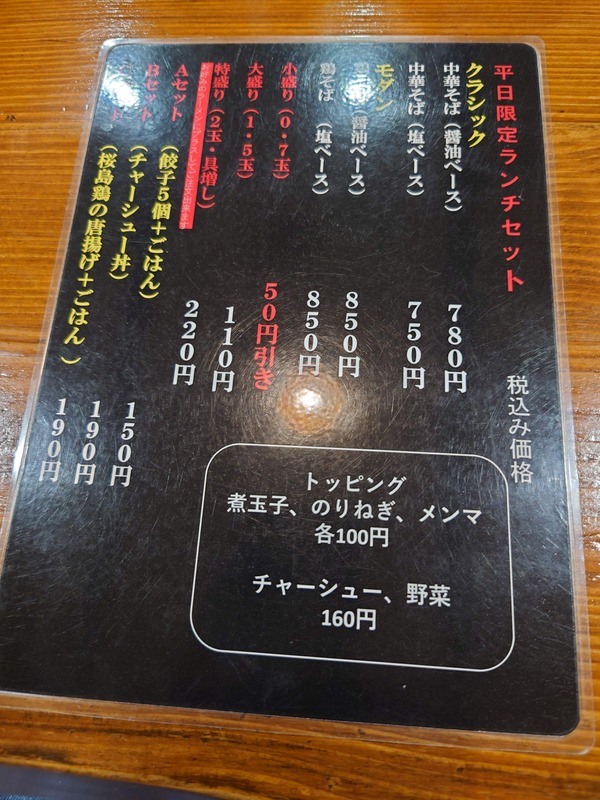 平日限定ランチセット
税込み価格
クラシック
中華そば（醤油ベース） 780円
中華そば（塩ベース） 750円
モダン
鶏そば（醤油ベース） 850円
鶏そば（塩ベース） 850円
小盛り（0・7玉） 50円引き
大盛り（1・5玉） 110円
特盛り（2玉・具増し） 220円
お好みのラーメンにプラスしてご注文出来ます
Aセット（餃子5個＋ごはん） 150円
Bセット（チャーシュー丼） 190円
（桜島鶏の唐揚げ＋ごはん） 190円
トッピング
煮玉子、のりねぎ、メンマ
各100円
チャーシュー、野菜
160円